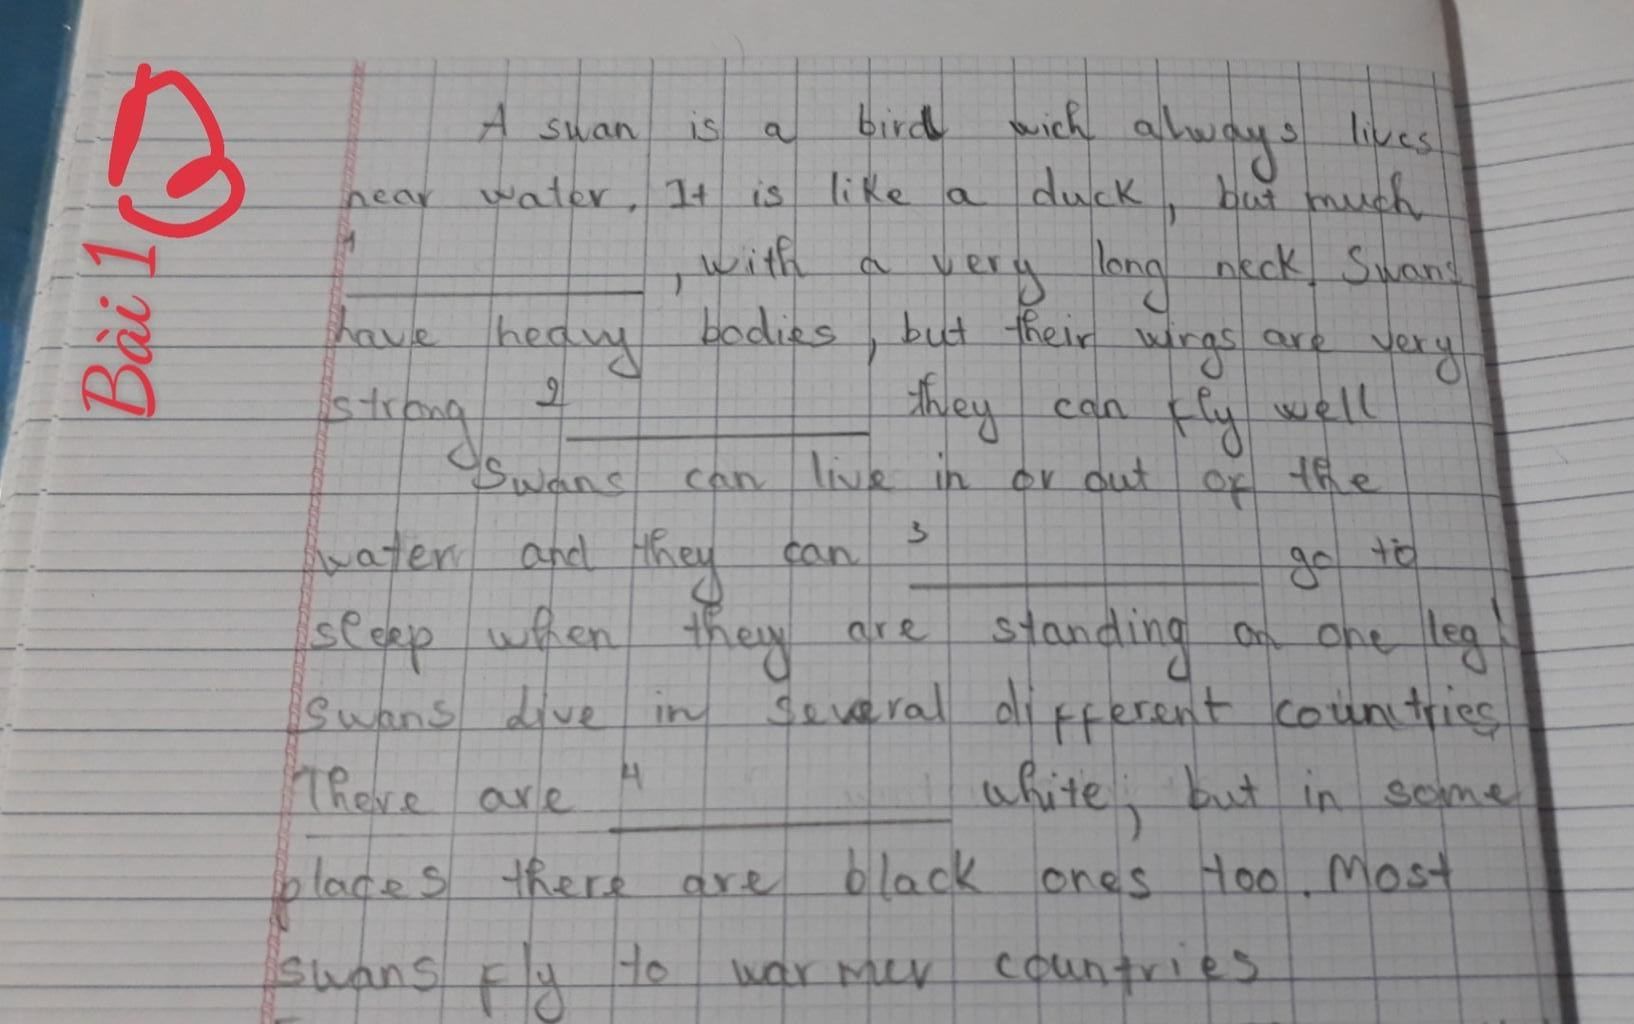 Bài 1
A swan is a bird wich always lives
near water. It is like a duck, but much
1 __________, with a very long neck Swans
have heavy bodies, but their wings are very
strong 2 __________ they can fly well
Swans can live in or out of the
water and they can 3 __________ go to
sleep when they are standing on one leg!
Swans live in several different countries
There are 4 __________ white, but in some
places there are black ones too. Most
swans fly to warmer countries